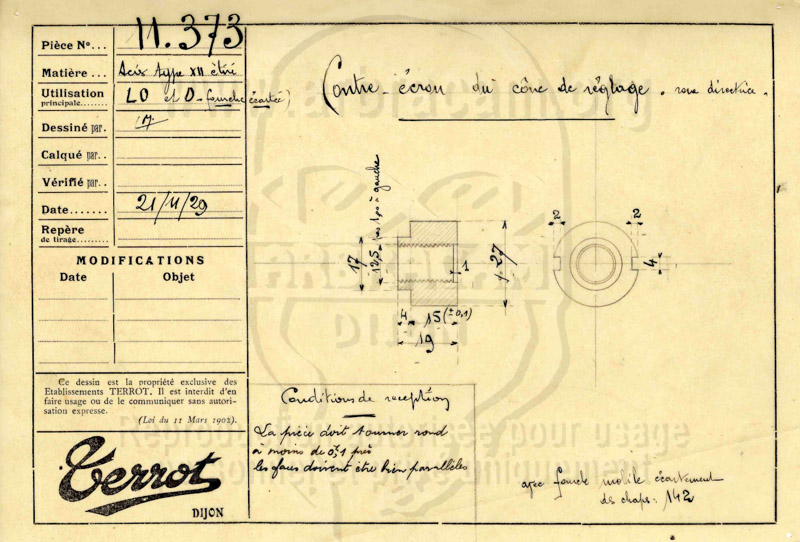 Pièce N°... 11.373
Matière... Acier type XII étiré
Utilisation
principale........ LO et O - fourche écartée)
Dessiné par.
Calqué par..
Vérifié par..
Date....... 21/11/29
Repère
de tirage...
MODIFICATIONS
Date Objet
Ce dessin est la propriété exclusive des
Etablissements TERROT. Il est interdit d'en
faire usage ou de le communiquer sans autori-
sation expresse.
(Loi du 11 Mars 1902).
Terrot
DIJON
Contre-écrou du cône de réglage. roue directrice.
17
12,5 pas 1,00 à gauche
1
27
4 15 (±0,1)
19
2 2
4
Conditions de reception
La pièce doit tourner rond
à moins de 0,1 près
les faces doivent être bien parallèles
avec fourche mobile écartement
des chapes: 142
www.arbracam.org
ARBRACAM
DIJON
Reproduction autorisée pour usage
personnel et privé uniquement